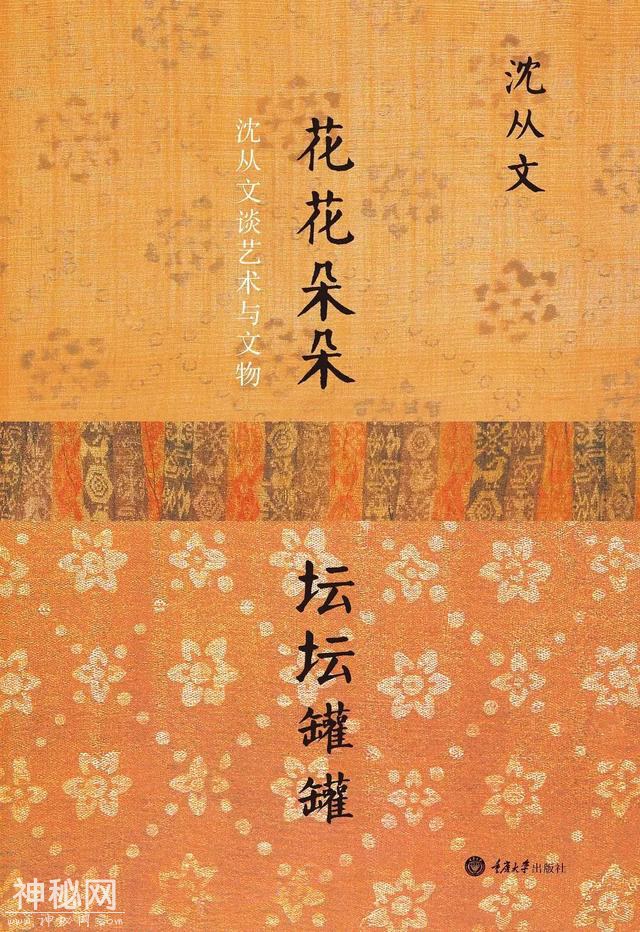 沈从文
花花朵朵
坛坛罐罐
沈从文谈艺术与文物
重庆大学出版社
神秘网